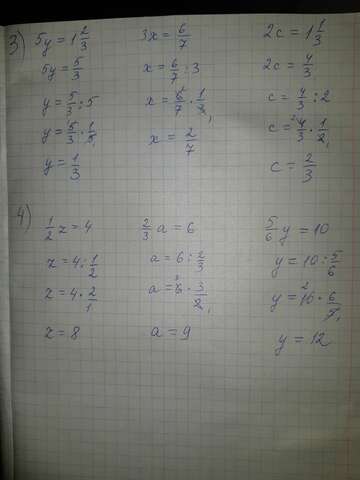 3) 5y = 1 2/3
5y = 5/3
y = 5/3 : 5
y = 5/3 · 1/5
y = 1/3
3x = 6/7
x = 6/7 : 3
x = 6/7 · 1/3
x = 2/7
2c = 1 1/3
2c = 4/3
c = 4/3 : 2
c = 4/3 · 1/2
c = 2/3
4) 1/2 z = 4
z = 4 : 1/2
z = 4 · 2/1
z = 8
2/3 a = 6
a = 6 : 2/3
a = 6 · 3/2
a = 9
5/6 y = 10
y = 10 : 5/6
y = 10 · 6/5
y = 12